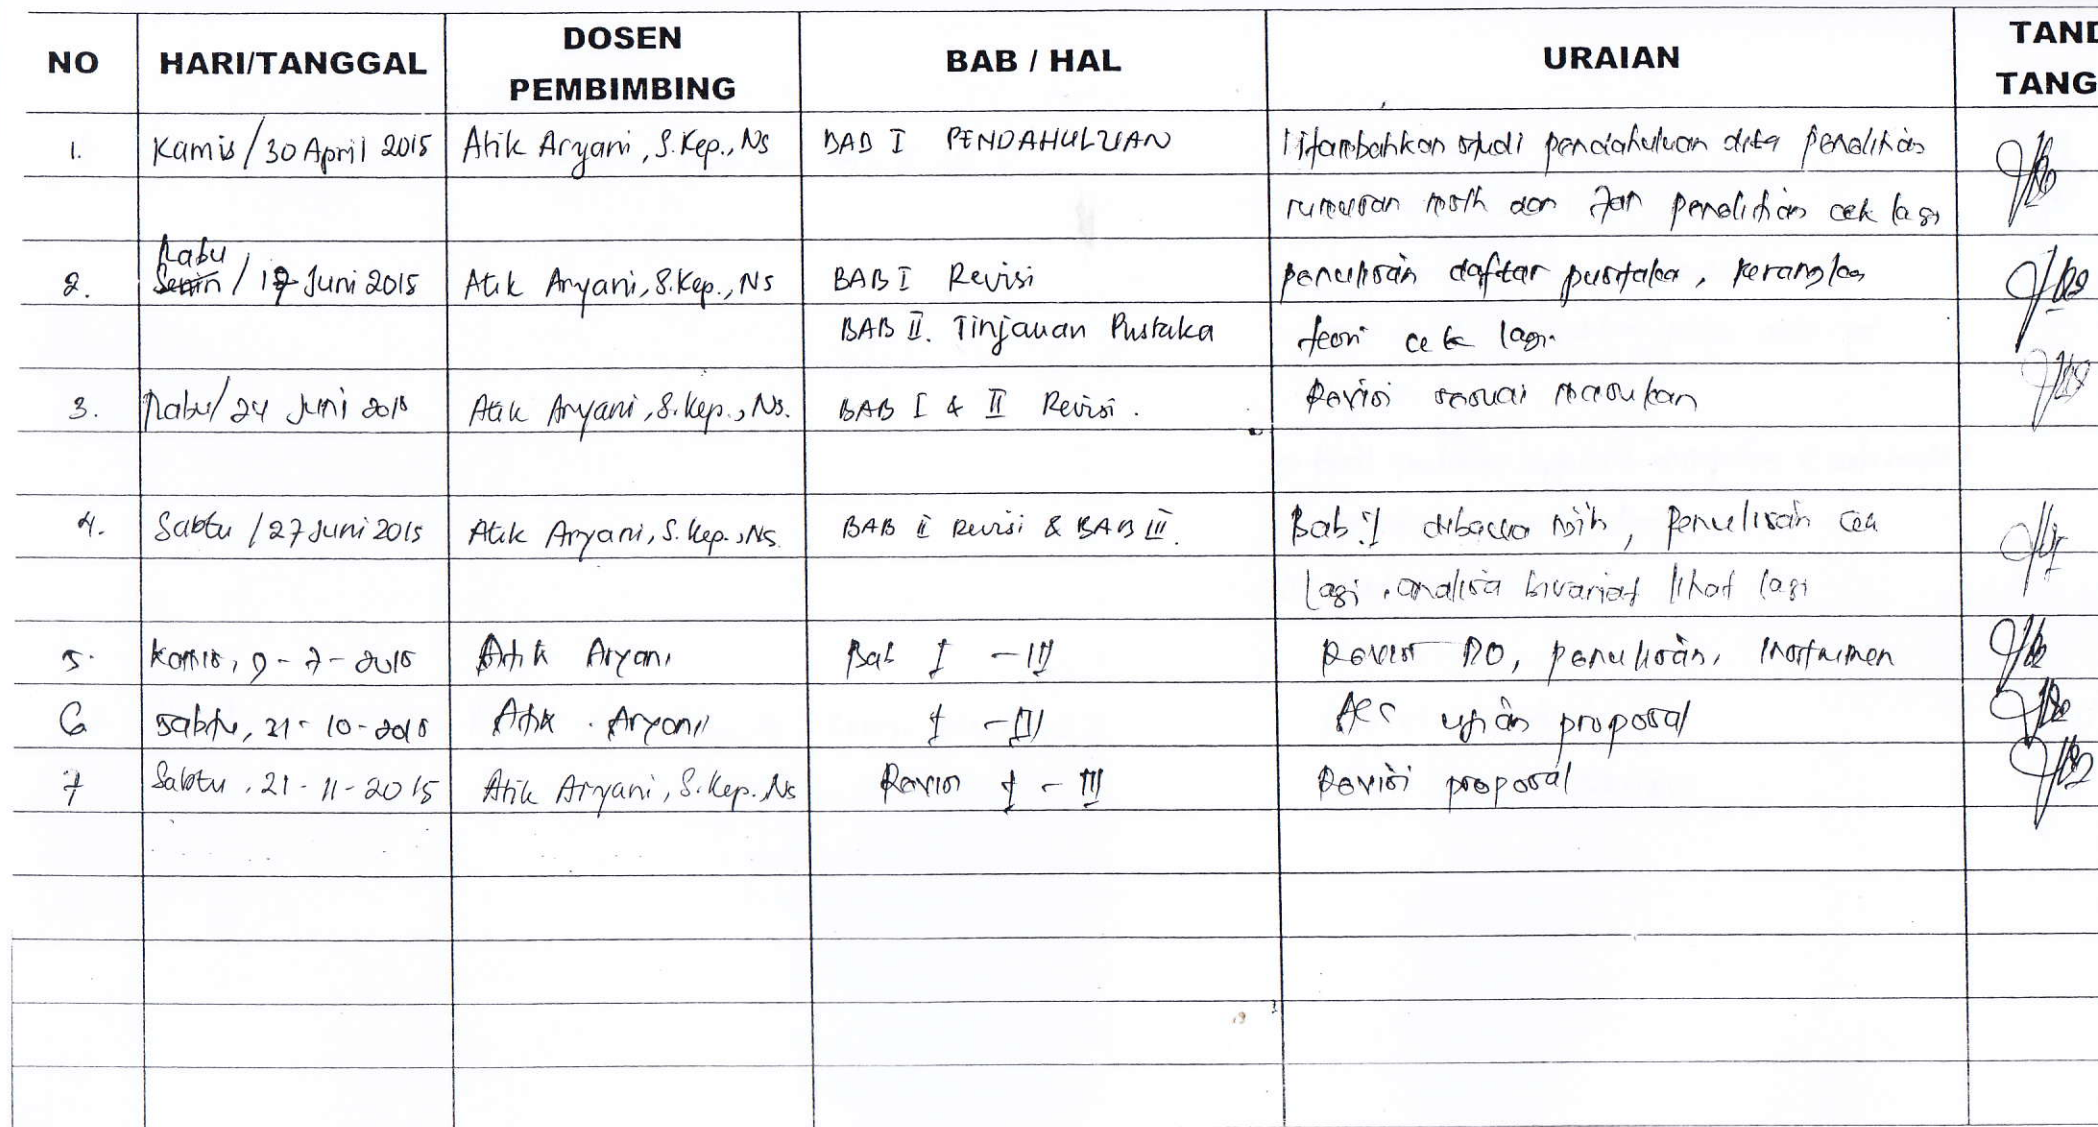 NO HARI/TANGGAL DOSEN PEMBIMBING BAB / HAL URAIAN TAND TANG
1. Kamis / 30 April 2015 Atik Aryani, S.Kep., Ns BAB I PENDAHULUAN ditambahkan studi pendahuluan penelitian
rumusan dan penelitian cek lagi
Rabu
2. Senin / 17 Juni 2015 Atik Aryani, S.Kep., Ns BAB I Revisi penulisan daftar pustaka, kerangka
BAB II. Tinjauan Pustaka teori cek lagi.
3. Rabu / 24 Juni 2015 Atik Aryani, S.Kep., Ns. BAB I & II Revisi. Revisi sesuai masukan
4. Sabtu / 27 Juni 2015 Atik Aryani, S.Kep., Ns. BAB II Revisi & BAB III. Bab, penulisan cek
lagi, analisa bivariat lihat lagi
5. Kamis, 9-7-2015 Atik Aryani Bab I - III Revisi DO, penulisan, instrumen
6 Sabtu, 21-10-2015 Atik Aryani I - III ACC ujian proposal
7 Sabtu, 21-11-2015 Atik Aryani, S.Kep., Ns Revisi I - III Revisi proposal